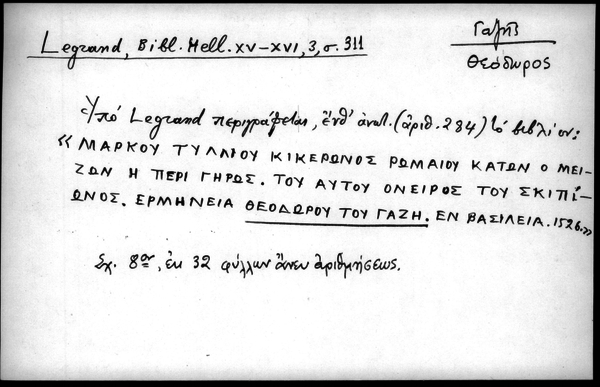 Legrand, Bibl. Hell. XV–XVI, 3, σ. 311
Γαζῆς
Θεόδωρος
Ὑπό Legrand περιγράφεται, ἔνθ' ἀνωτ. (ἀριθ. 284) τό βιβλίον:
« ΜΑΡΚΟΥ ΤΥΛΛΙΟΥ ΚΙΚΕΡΩΝΟΣ ΡΩΜΑΙΟΥ ΚΑΤΩΝ Ο ΜΕΙ-
ΖΩΝ Η ΠΕΡΙ ΓΗΡΩΣ. ΤΟΥ ΑΥΤΟΥ ΟΝΕΙΡΟΣ ΤΟΥ ΣΚΙΠΙ-
ΩΝΟΣ. ΕΡΜΗΝΕΙΑ ΘΕΟΔΩΡΟΥ ΤΟΥ ΓΑΖΗ. ΕΝ ΒΑΣΙΛΕΙΑ. 1526.»
Σχ. 8ον, ἐκ 32 φύλλων ἄνευ ἀριθμήσεως.